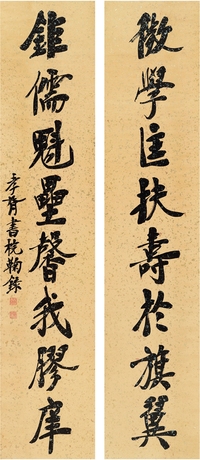 微學匡扶壽於旗翼
鉅儒魁壘馨我膠庠
季膺書杭鞠錄